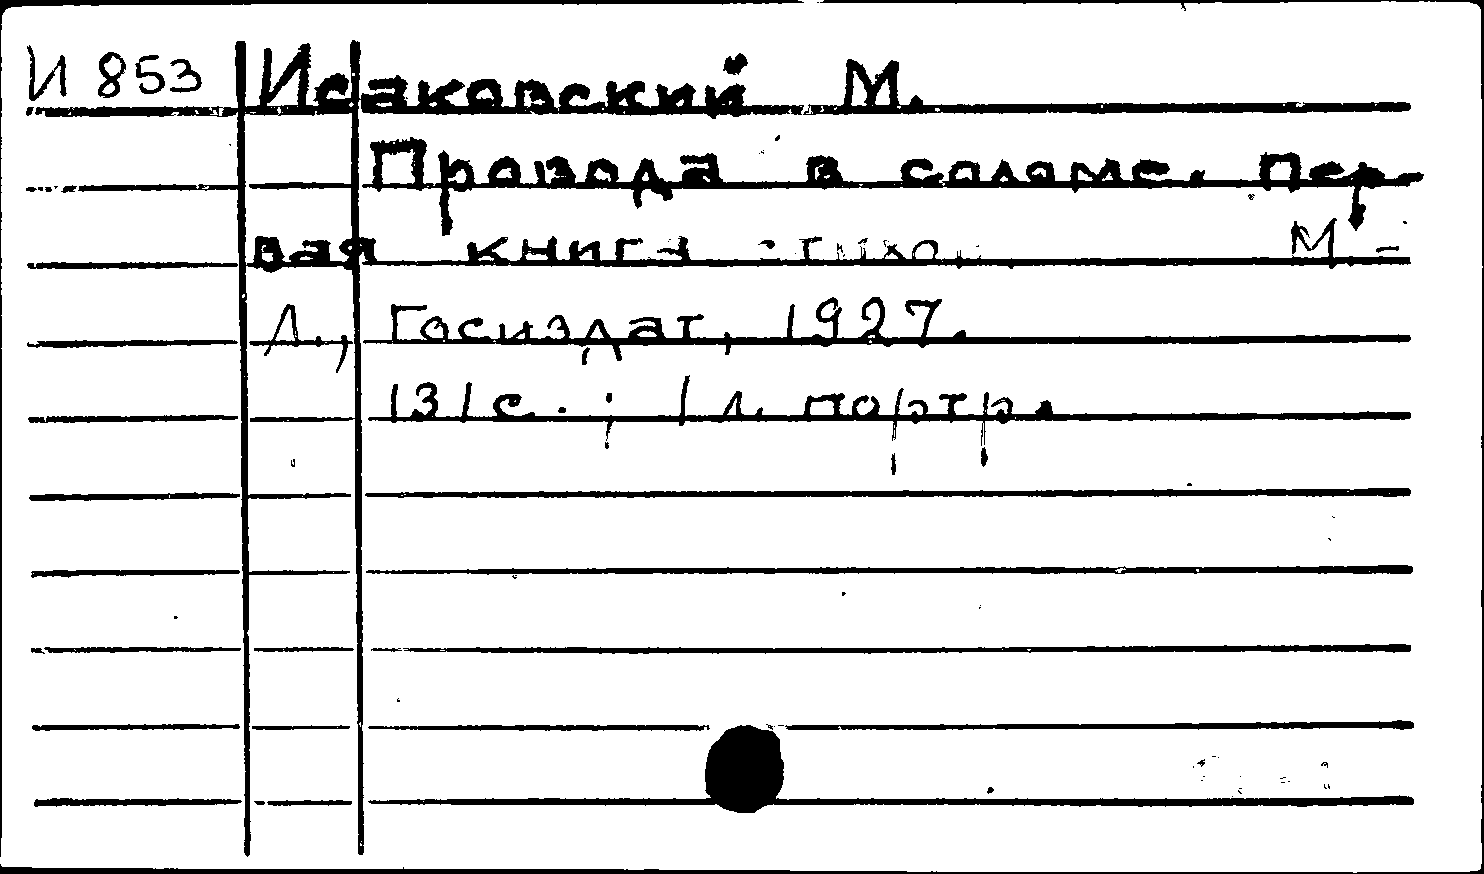 И 853 Исаковский М.
Провода в соломе. Пер-
вая книга стихов. М.-
Л., Госиздат, 1927.
131 с. ; 1 л. портр.